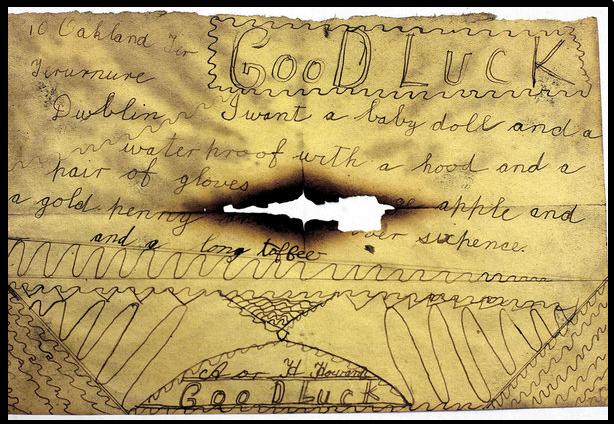 10 Oakland Ter
Terurnure
Dublin
GOOD LUCK
I want a baby doll and a
waterproof with a hood and a
pair of gloves
apple and
a gold penny
sixpence.
and a long toffee
A or H Howard
GOOD LUCK